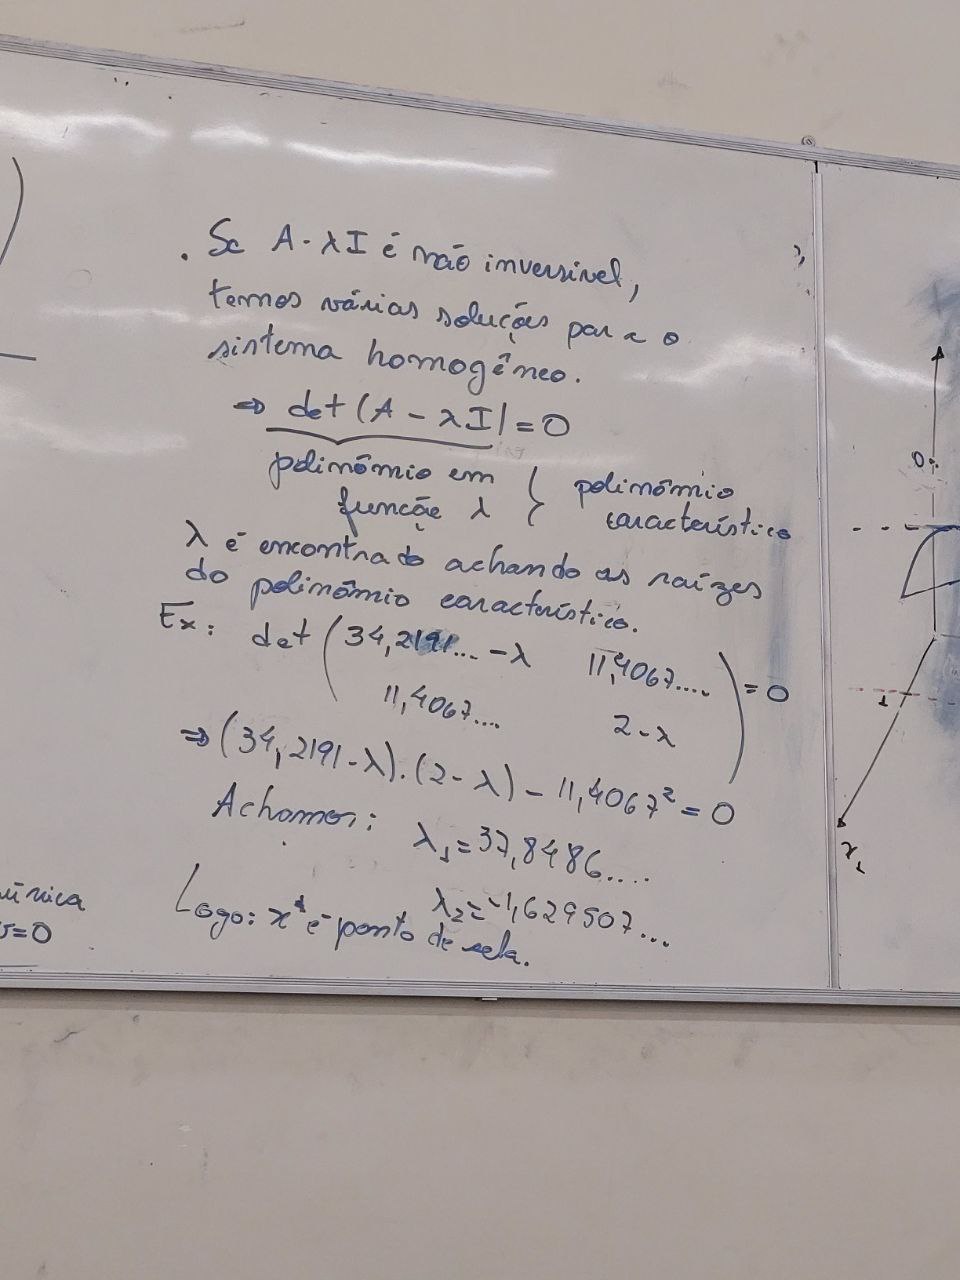 . Se A - λI é não inversível,
temos várias soluções para o
sistema homogêneo.
⇒ det (A - λI) = 0
polinômio em } polinômio
função λ } característico
λ é encontrado achando as raízes
do polinômio característico.
Ex: det ( 34,2191... - λ 11,4067.... ) = 0
11,4067.... 2 - λ
⇒ (34,2191 - λ).(2 - λ) - 11,4067² = 0
Achamos: λ₁ = 37,8486....
λ₂ = -1,629507...
Logo: x* é ponto de sela.
única
=0
0
1
x₁